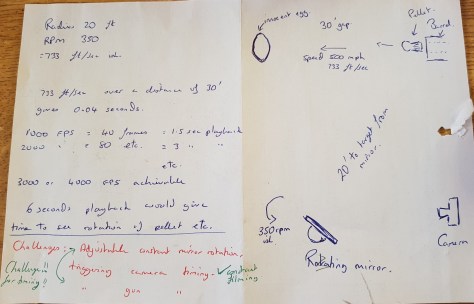 Radius 20 ft
RPM 350
= 733 ft/sec vel.
733 ft/sec over a distance of 30'
gives 0.04 seconds.
1000 FPS = 40 frames = 1.5 sec playback
2000 " = 80 etc. = 3 "
etc.
3000 or 4000 FPS achievable
6 seconds playback would give
time to see rotation of pellet etc.
Challenges: Adjustable constant mirror rotation.
triggering camera timing. ✓ constant filming
" gun "
Challenge!! for timing!!
egg
30' gap
Pellet.
Barrel
Speed 500 mph
733 ft/sec
20' to target from mirror.
350 rpm
vel
Rotating mirror.
Camera